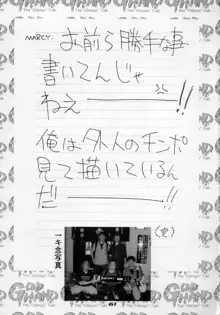 MARCY:
お前ら勝手な事
書いてんじゃ
ねえ――――!!
俺は外人のチンポ
見て描いているん
だ――――!!
(史)
一キ念写真
61